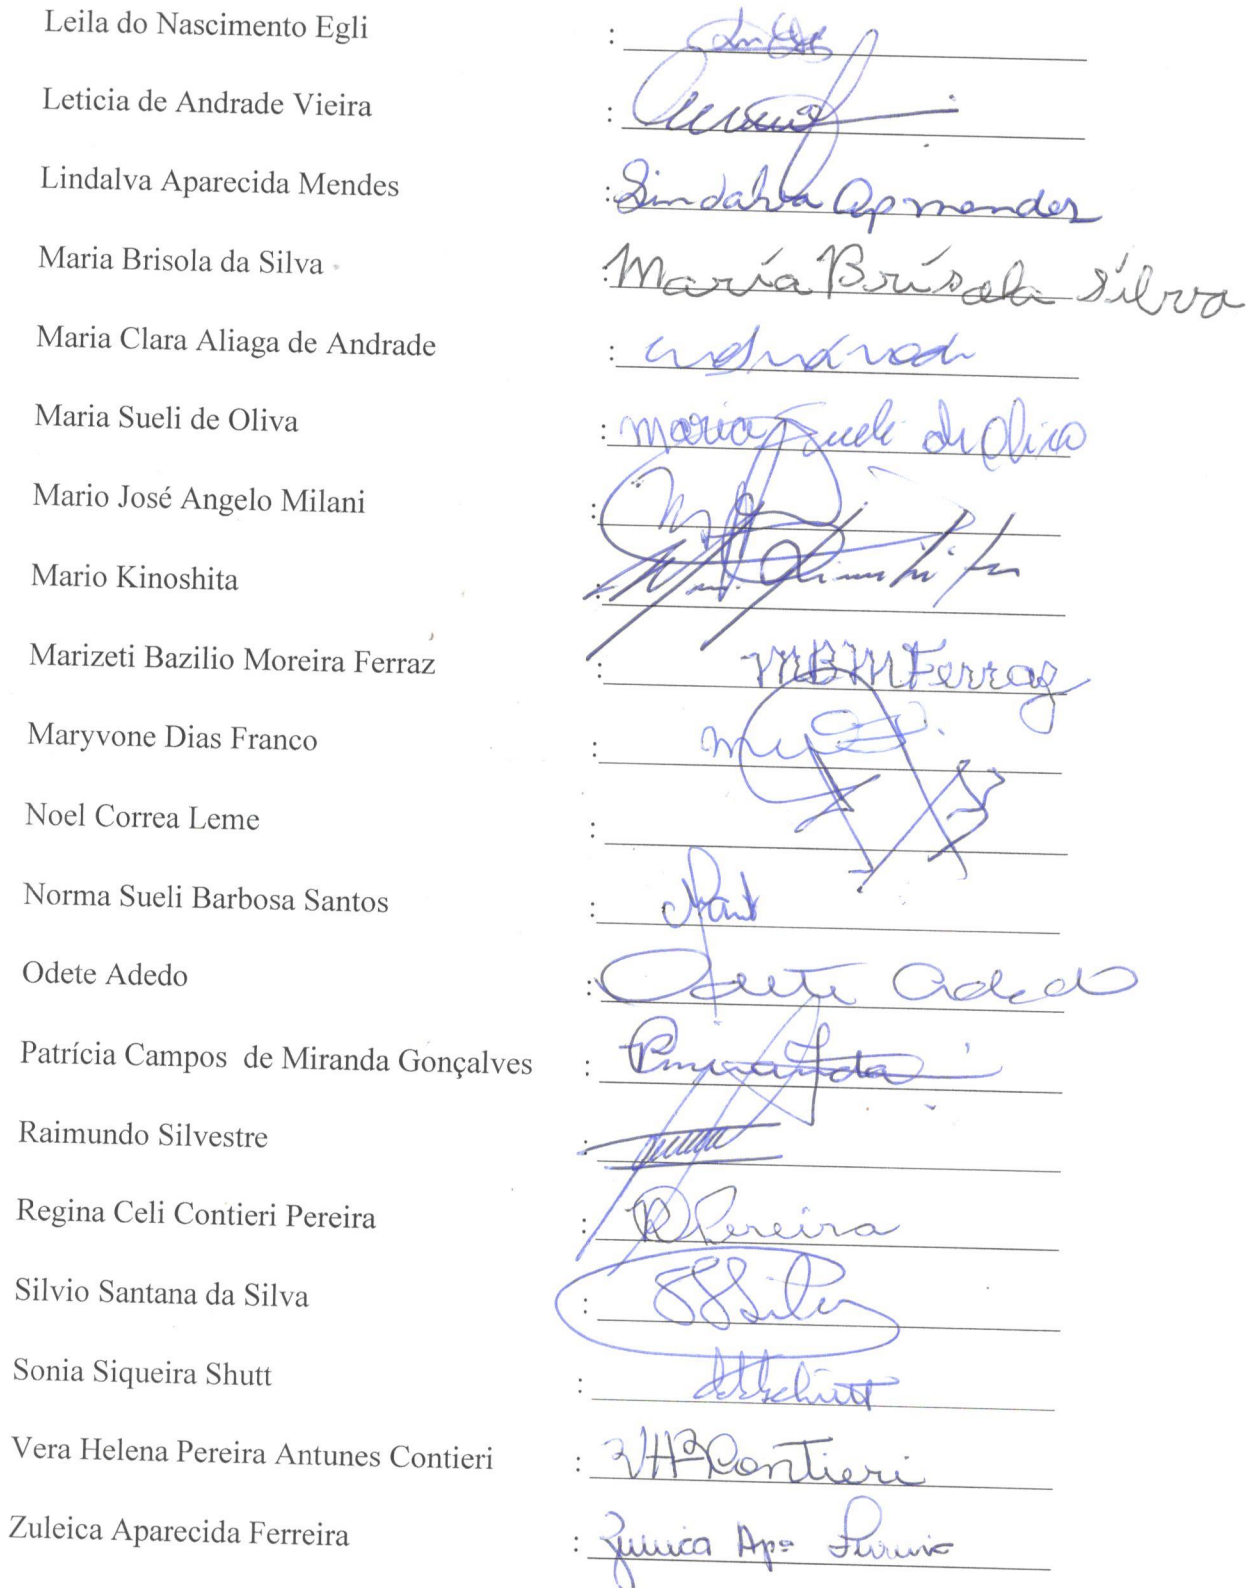 Leila do Nascimento Egli :
Leticia de Andrade Vieira :
Lindalva Aparecida Mendes : Lindalva Ap mendes
Maria Brisola da Silva : María Brísola Sílva
Maria Clara Aliaga de Andrade :
Maria Sueli de Oliva : maria Sueli de Oliva
Mario José Angelo Milani :
Mario Kinoshita : Kinoshita
Marizeti Bazilio Moreira Ferraz : MBMFerraz
Maryvone Dias Franco :
Noel Correa Leme :
Norma Sueli Barbosa Santos :
Odete Adedo : Odete Adedo
Patrícia Campos de Miranda Gonçalves : PMiranda
Raimundo Silvestre :
Regina Celi Contieri Pereira : RPereira
Silvio Santana da Silva : SSSilva
Sonia Siqueira Shutt : Schutt
Vera Helena Pereira Antunes Contieri : Contieri
Zuleica Aparecida Ferreira : Zuleica Apª Ferreira